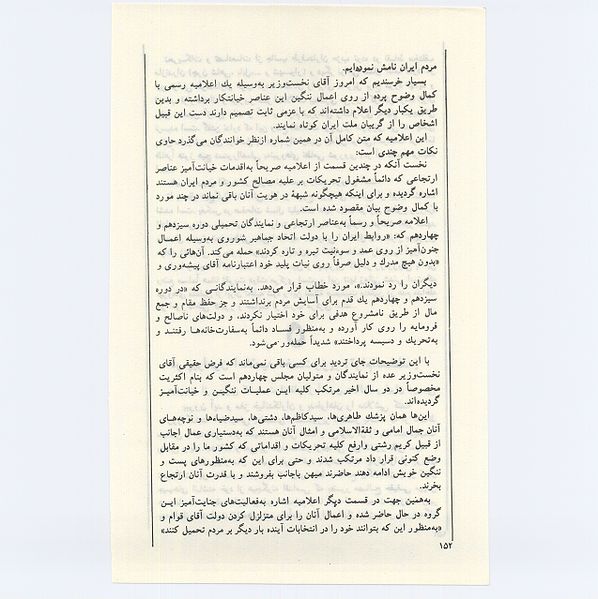 مردم ایران نامش نموده‌ایم.
بسیار خرسندیم که امروز آقای نخست‌وزیر به‌وسیله یك اعلامیه رسمی با
کمال وضوح پرده از روی اعمال ننگین این عناصر خیانتکار برداشته و بدین
طریق یکبار دیگر اعلام داشته‌اند که با عزمی ثابت تصمیم دارند دست این قبیل
اشخاص را از گریبان ملت ایران کوتاه نمایند.
این اعلامیه که متن کامل آن در همین شماره ازنظر خوانندگان می‌گذرد حاوی
نکات مهم چندی است:
نخست آنکه در چندین قسمت از اعلامیه صریحاً به‌اقدمات خیانت‌آمیز عناصر
ارتجاعی که دائماً مشغول تحریکات بر علیه مصالح کشور و مردم ایران هستند
اشاره گردیده و برای اینکه هیچگونه شبهه‌ٔ در هویت آنان باقی نماند در چند مورد
با کمال وضوح بیان مقصود شده است.
اعلامه صریحاً و رسماً به‌عناصر ارتجاعی و نمایندگان تحمیلی دوره سیزدهم و
چهاردهم که: «روابط ایران را با دولت اتحاد جماهیر شوروی به‌وسیله اعمال
جنون‌آمیز از روی عمد و سوءنیت تیره و تاره کردند» حمله می‌کند. آن‌هائی را که
«بدون هیچ مدرك و دلیل صرفاً روی نیات پلید خود اعتبارنامه آقای پیشه‌وری و
دیگران را رد نمودند.»، مورد خطاب قرار می‌دهد. به‌نمایندگانی که «در دوره
سیزدهم و چهاردهم یك قدم برای آسایش مردم برنداشتند و جز حفظ مقام و جمع
مال از طریق نامشروع هدفی برای خود اختیار نکردند، و دولت‌های ناصالح و
فرومایه را روی کار آورده و به‌منظور فساد دائماً به‌سفارت‌خانه‌ها رفتند و
به‌تحریك و دسیسه پرداختند» شدیداً حمله‌ور می‌شود.
با این توضیحات جای تردید برای کسی باقی نمی‌ماند که فرض حقیقی آقای
نخست‌وزیر عده از نمایندگان و متولیان مجلس چهاردهم است که بنام اکثریت
مخصوصاً در دو سال اخیر مرتکب کلیه این عملیات ننگین و خیانت‌آمیز
گردیده‌اند.
این‌ها همان پزشك طاهری‌ها، سیدکاظم‌ها، دشتی‌ها، سیدضیاءها و نوچه‌های
آنان جمال امامی و ثقةالاسلامی و امثال آنان هستند که به‌دستیاری عمال اجانب
از قبیل کریم رشتی وارفع کلیه تحریکات و اقداماتی که کشور ما را در مقابل
وضع کنونی قرار داد مرتکب شدند و حتی برای این که به‌منظورهای پست و
ننگین خویش ادامه دهند حاضرند میهن باجانب بفروشند و با قدرت آنان ارتجاع
بخرند.
به‌همین جهت در قسمت دیگر اعلامیه اشاره به‌فعالیت‌های جنایت‌آمیز این
گروه در حال حاضر شده و اعمال آنان را برای متزلزل کردن دولت آقای قوام و
«به‌منظور این که بتوانند خود را در انتخابات آینده بار دیگر بر مردم تحمیل کنند»
۱۵۲